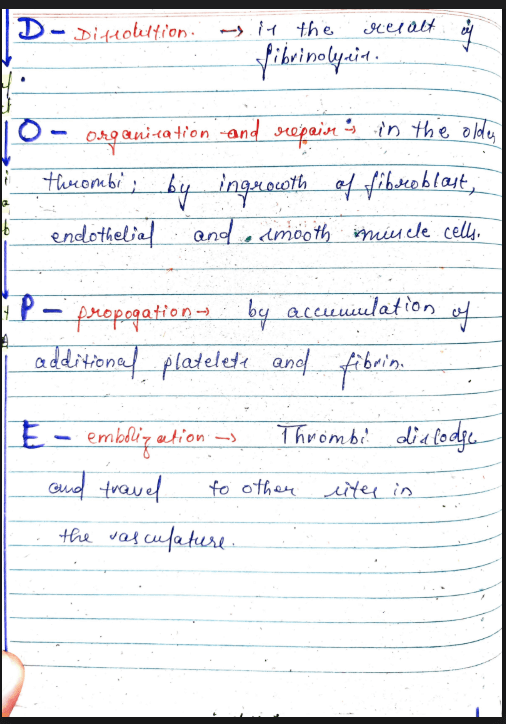 D - Dissolution. → is the result of
fibrinolysis.
O - organisation and repair → in the older
thrombi; by ingrowth of fibroblast,
endothelial and smooth muscle cells.
P - propogation → by accumulation of
additional platelets and fibrin.
E - embolization → Thrombi dislodge
and travel to other sites in
the vasculature.